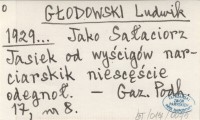 GŁODOWSKI Ludwik
1929... Jako Sałaciorz
Jasiek od wyścigów nar-
ciarskik niescęście
odegnoł. – Gaz. Podh.
17, nr 8.